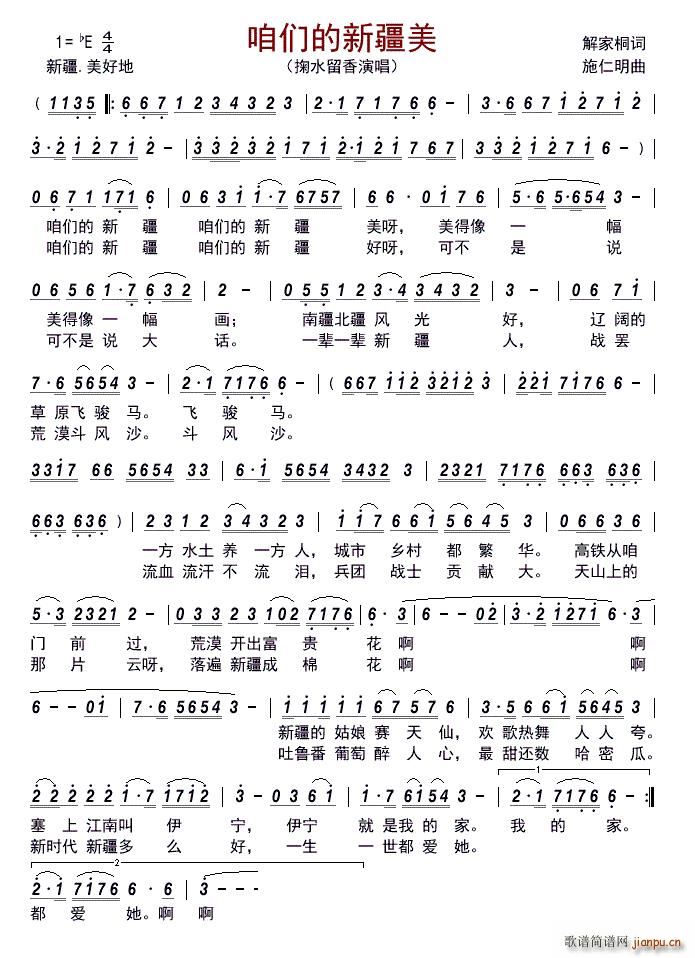 咱们的新疆美
1= ♭E 4/4
解家桐词
新疆.美好地
（掬水留香演唱）
施仁明曲
( 1135 ‖: 6 6 7 1 2 3 4 3 2 3 | 2·1 7 1 7 6 - | 3·6 6 7 1 2 7 1 2
3·2 1 2 7 1 2 - | 3 3 2 3 2 1 7 1 2·1 2 1 7 1 7 6 | 3 3 2 3 1 2 7 1 6 - )
0 6 7 1 1 7 1 6 | 0 6 3 1 1·7 6 7 5 7 | 6 6 - 0 1 7 6 | 5·6 5·6 5 4 3 -
咱们的 新 疆 咱们的 新 疆 美呀， 美得像 一 幅
咱们的 新 疆 咱们的 新 疆 好呀， 可不 是 说
0 6 5 6 1·7 6 3 6 | 2 - | 0 5 5 1 2 3 4 3 3 4 3 2 | 3 - 0 6 7 1
美得像 一 幅 画； 南疆北疆 风 光 好， 辽 阔的
可不是 说 大 话。 一辈一辈 新 疆 人， 战 罢
7·6 5 6 5 4 3 - | 2·1 7 1 7 6 6 - | ( 6 6 7 1 1 2 3 2 1 2 3 | 2 2 1 7 1 7 6 -
草 原飞 骏 马。 飞 骏 马。
荒 漠斗 风 沙。 斗 风 沙。
3 3 1 7 6 6 5 6 5 4 3 3 | 6·1 5 6 5 4 3 5 2 3 | 2 3 2 1 7 1 7 6 6 6 3 6 3 6
6 6 3 6 3 6 ) | 2 3 1 2 3 4 3 2 3 | 1 1 7 6 6 1 5 6 4 5 3 | 0 6 6 3 6
一方 水土 养 一方 人， 城市 乡村 都 繁 华。 高铁从咱
流血 流汗 不 流 泪， 兵团 战士 贡 献 大。 天山上的
5·3 2 3 2 1 2 - | 0 3 3 2 3 1 0 2 7 1 7 6 | 6·3 - - | 6 - - 0 2 | 3·2 1 2 7 1 6·3
门 前 过， 荒漠 开出富 贵 花 啊 啊
那 片 云呀， 落遍 新疆成 棉 花 啊 啊
6 - - 0 1 | 7·6 5 6 5 4 3 - | 1 1 1 1 1 6 7 5 7 6 | 3·5 6 6 1 5 6 5 3
新疆的 姑娘 赛 天 仙， 欢 歌热舞 人 人 夸。
吐鲁番 葡萄 醉 人 心， 最 甜还数 哈 密 瓜。
2 2 2 2 2 1·7 1 7 1 2 | 3 - 0 3 6 1 | 1·7 6 6 1 5 4 3 - | 2·1 7 1 7 6 6 - :‖
塞 上 江南叫 伊 宁， 伊宁 就 是我 的 家。 我 的 家。
新时代 新疆多 么 好， 一生 一 世都 爱 她。
2·1 7 1 7 6 6·6 | 3 - - - |
都 爱 她。啊 啊
歌谱简谱网
jianpu.cn